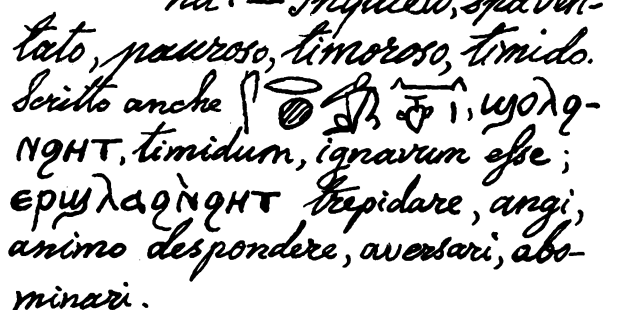 na. — Inquieto, spaven-
tato, pauroso, timoroso, timido.
Scritto anche , ϣⲟⲗϩ-
ⲛϩⲏⲧ, timidum, ignavum esse;
ⲉⲣϣⲗⲁϩⲛ̀ϩⲏⲧ trepidare, angi,
animo despondere, aversari, abo-
minari.